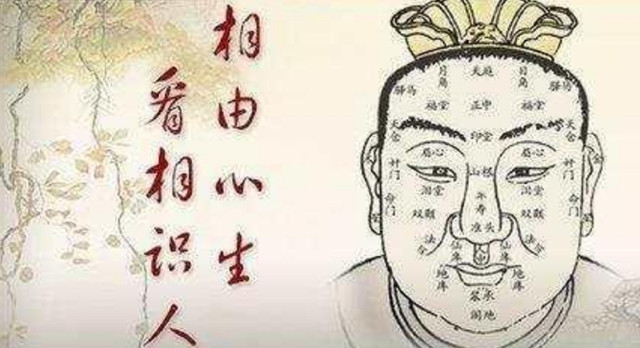 相由心生
看相识人
天庭
月角
日角
驿马
驿马
福堂
正中
福堂
天仓
印堂
天仓
眉心
眉心
奸门
山根
奸门
泪堂
年寿
泪堂
命门
双颧
双颧
命门
准头
法令
仙库
仙库
法令
地库
地库
承
地阁